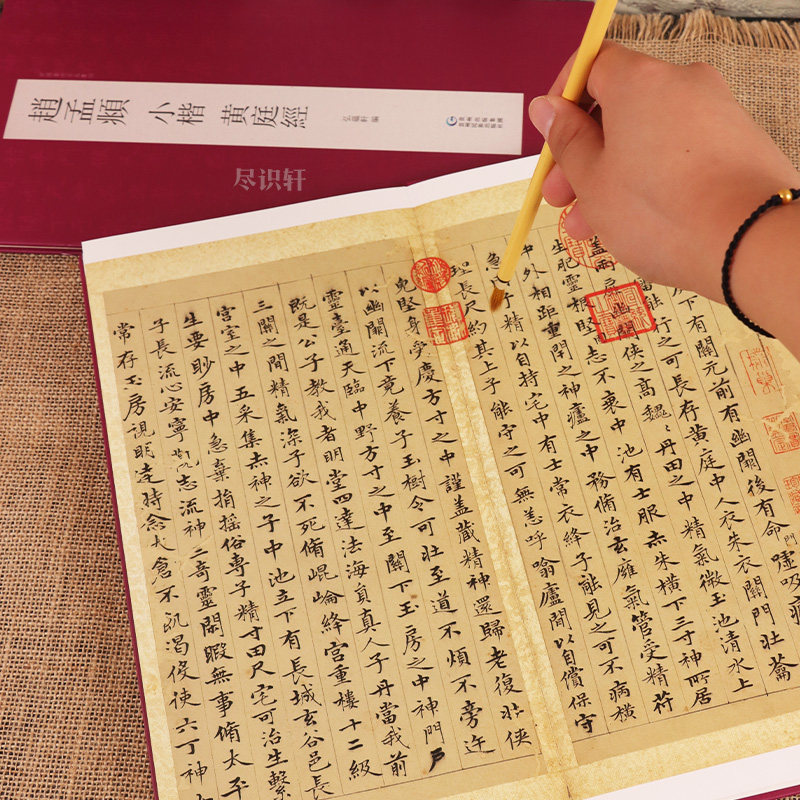 趙孟頫 小楷 黃庭經
弘蘊軒 編
尽识轩
下有關元前有幽闕後有命門噓吸廬
能行之可長存黃庭中人衣朱衣關門壯籥
蓋兩扉幽闕俠之高魏〻丹田之中精氣微玉池清水上
生肥靈根堅志不衰中池有士服赤朱橫下三寸神所居
中外相距重閉之神廬之中務脩治玄廱氣管受精符
急子精以自持宅中有士常衣絳子能見之可不病橫
理長尺約其上子能守之可無恙呼噏廬間以自償保守
完堅身受慶方寸之中謹蓋藏精神還歸老復壯俠
以幽闕流下竟養子玉樹令可壯至道不煩不旁迕
靈臺通天臨中野方寸之中至關下玉房之中神門戶
既是公子教我者明堂四達法海員真人子丹當我前
三關之間精氣深子欲不死脩崐崘絳宮重樓十二級
宮室之中五采集赤神之子中池立下有長城玄谷邑長
生要眇房中急棄捐搖俗專子精寸田尺宅可治生繫
子長流心安寧觀志流神三奇靈閑暇無事脩太平
常存玉房視明達時念大倉不飢渴役使六丁神